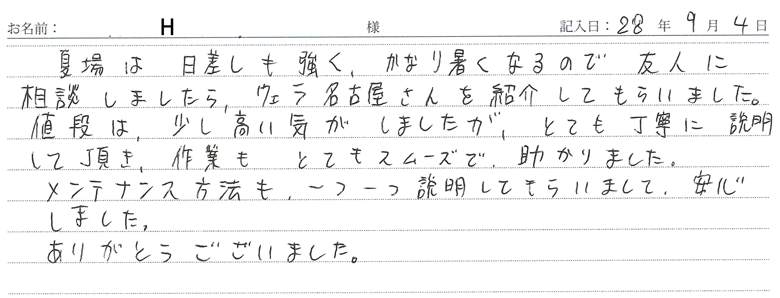 お名前： H 様 記入日：28年9月4日
夏場は 日差しも強く、かなり暑くなるので 友人に
相談しましたら、ヴェラ名古屋さんを紹介してもらいました。
値段は、少し高い気がしましたが、とても丁寧に 説明
して頂き、作業も とてもスムーズで、助かりました。
メンテナンス方法も、一つ一つ説明してもらいまして、安心
しました。
ありがとうございました。